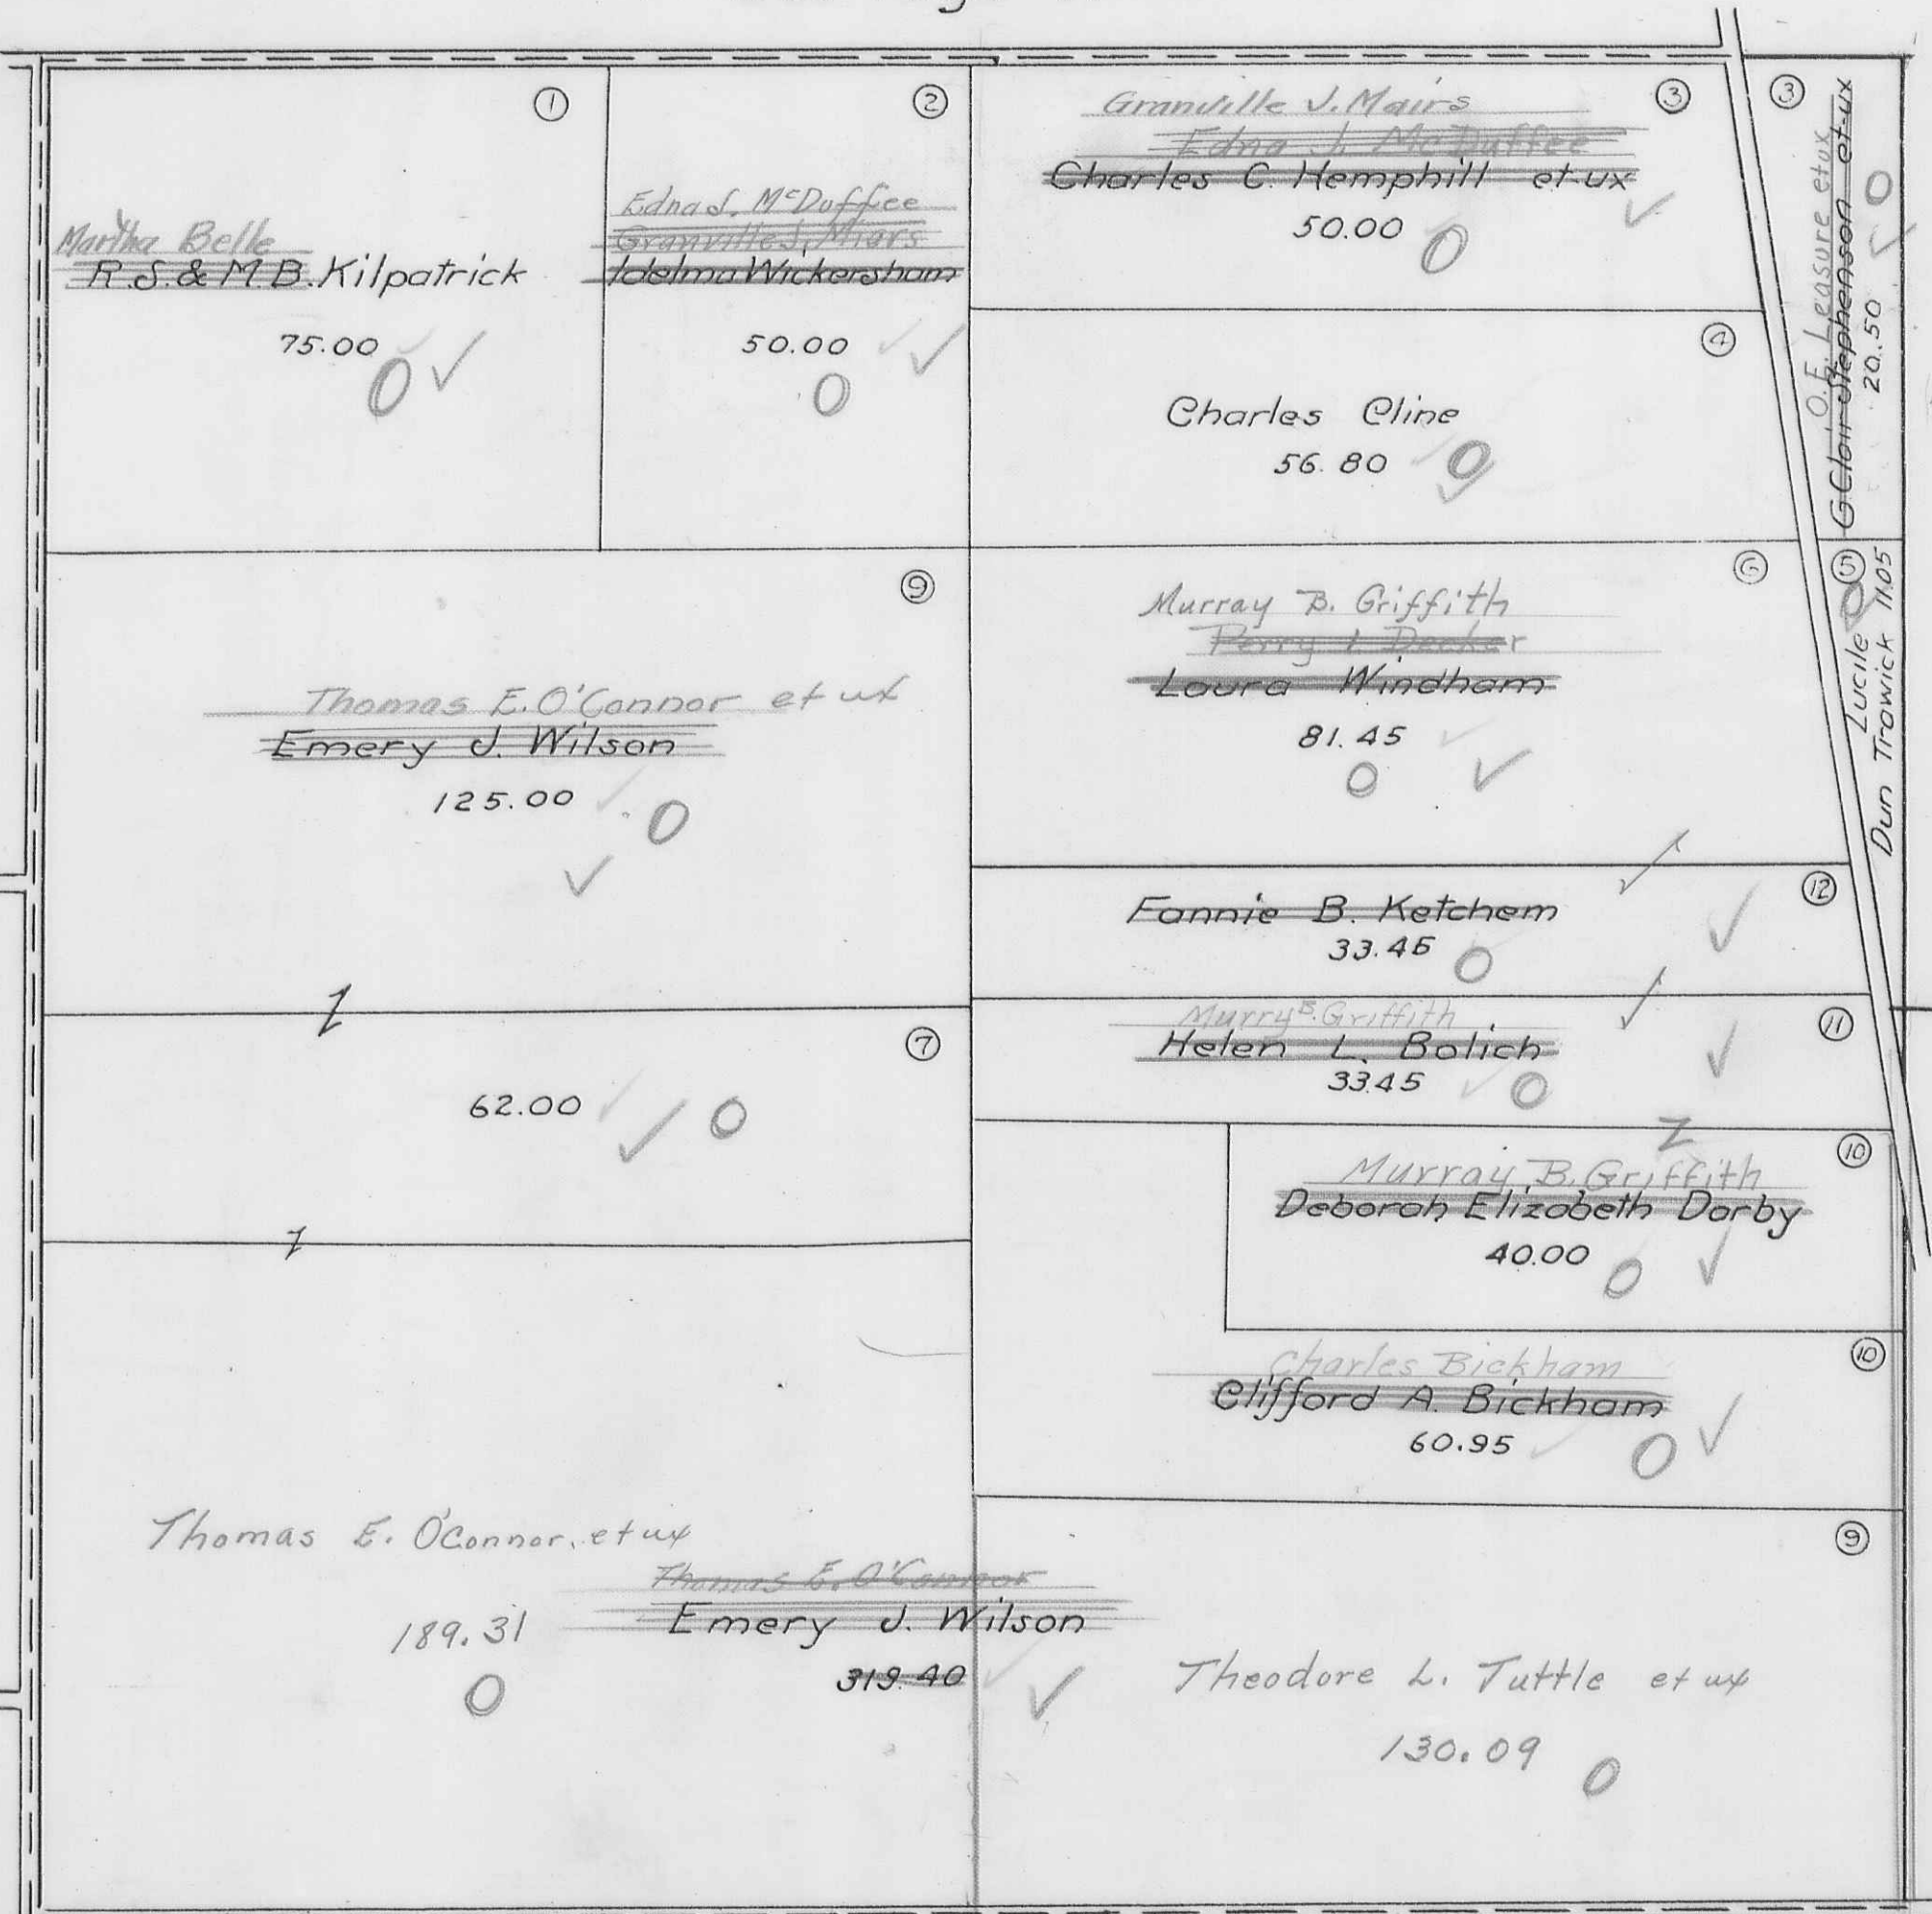 ①
Martha Belle
R.S. & M.B. Kilpatrick
75.00
②
Edna J. McDuffee
Granville J. Miars
Idelma Wickersham
50.00
③
Granville J. Mairs
Edna J. McDuffee
Charles C. Hemphill et-ux
50.00
③
O.E. Leasure et ux
G. Clair Stephenson et-ux
20.50
④
Charles Cline
56.80
⑤
Lucile
Dun Trawick 11.05
⑥
Murray B. Griffith
Perry L Decker
Loura Windham
81.45
⑨
Thomas E. O'Connor et ux
Emery J. Wilson
125.00
⑫
Fannie B. Ketchem
33.45
⑪
Murry B. Griffith
Helen L. Bolich
33.45
⑦
62.00
⑩
Murray B. Griffith
Deborah Elizabeth Darby
40.00
⑩
Charles Bickham
Clifford A. Bickham
60.95
Thomas E. O'Connor, et ux
189.31
Thomas E. O'Connor
Emery J. Wilson
319.40
⑨
Theodore L. Tuttle et ux
130.09